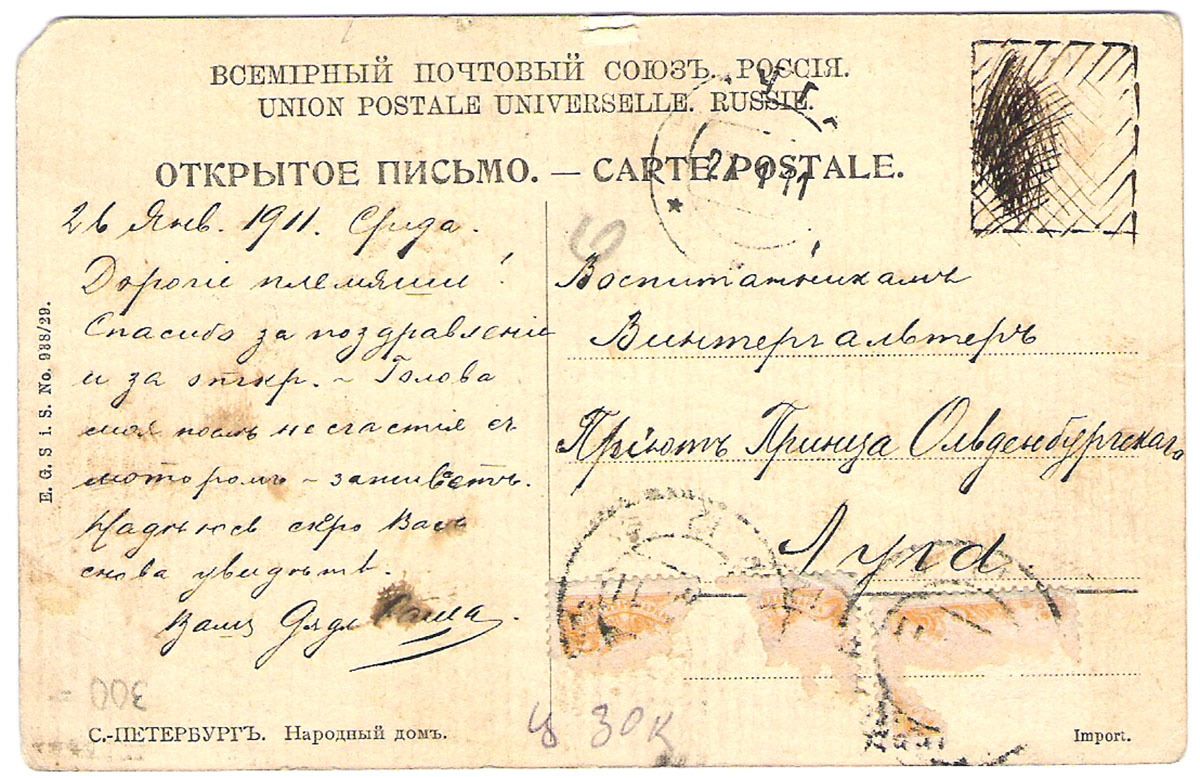 ВСЕМІРНЫЙ ПОЧТОВЫЙ СОЮЗЪ. РОССІЯ.
UNION POSTALE UNIVERSELLE. RUSSIE.
ОТКРЫТОЕ ПИСЬМО. — CARTE POSTALE.
26 Янв. 1911. Среда.
Дорогіе племяши!
Спасибо за поздравленіе
и за откр. – Голова
моя послѣ несчастія съ
моторомъ – заживаетъ.
Надѣюсь скоро Васъ
снова увидѣть.
Вашъ Дядя Саша.
Воспитанникамъ
Винтергальтеръ
Пріютъ Принца Ольденбургскаго
Луга
E. G. S i. S. No. 938/29.
300
С.-ПЕТЕРБУРГЪ. Народный домъ.
ц 30к
Import.